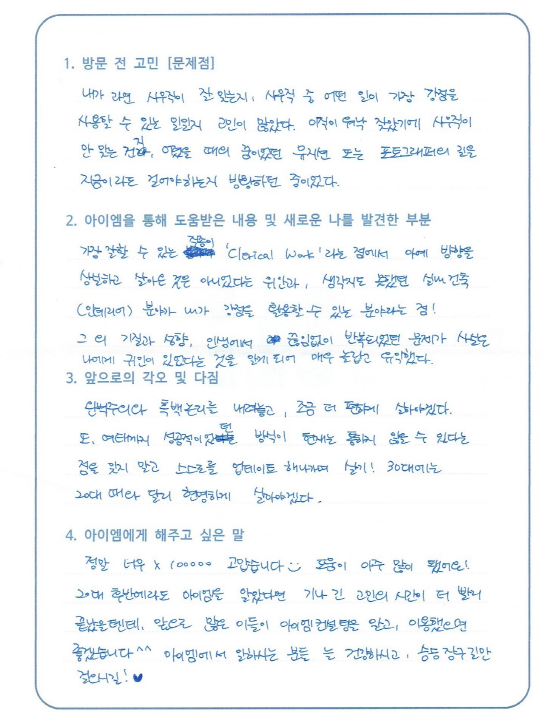 1. 방문 전 고민 [문제점]
내가 과연 사무직이 잘 맞는지, 사무직 중 어떤 일이 가장 강점을
사용할 수 있는 일일지 고민이 많았다. 이직이 워낙 잦았기에 사무직이
안 맞는 건지, 어렸을 때의 꿈이었던 뮤지션 또는 포토그래퍼의 길을
지금이라도 걸어야하는지 방황하던 중이었다.
2. 아이엠을 통해 도움받은 내용 및 새로운 나를 발견한 부분
가장 잘할 수 있는 직종이 'Clerical Work'라는 점에서 아예 방향을
상실하고 살아온 것은 아니었다는 위안과, 생각지도 못했던 실내건축
(인테리어) 분야가 내가 강점을 활용할 수 있는 분야라는 점!
그 외 기질과 성향, 인생에서 끊임없이 반복되었던 문제가 사실은
나에게 귀인이 있었다는 것을 알게 되어 매우 놀랍고 유익했다.
3. 앞으로의 각오 및 다짐
완벽주의와 흑백논리를 내려놓고, 조금 더 편하게 살아야겠다.
또, 여태까지 성공적이었던 방식이 현재는 통하지 않을 수 있다는
점을 잊지 말고 스스로를 업데이트 해나가며 살기! 30대에는
20대 때와 달리 현명하게 살아야겠다.
4. 아이엠에게 해주고 싶은 말
정말 너무 x 100000 고맙습니다 도움이 아주 많이 됐어요!
20대 후반에라도 아이엠을 알았다면 기나긴 고민의 시간이 더 빨리
끝났을텐데, 앞으로 많은 이들이 아이엠 컨설팅을 알고, 이용했으면
좋겠습니다 ^^ 아이엠에서 일하시는 분들 늘 건강하시고, 승승장구 길만
걸으시길! ♥